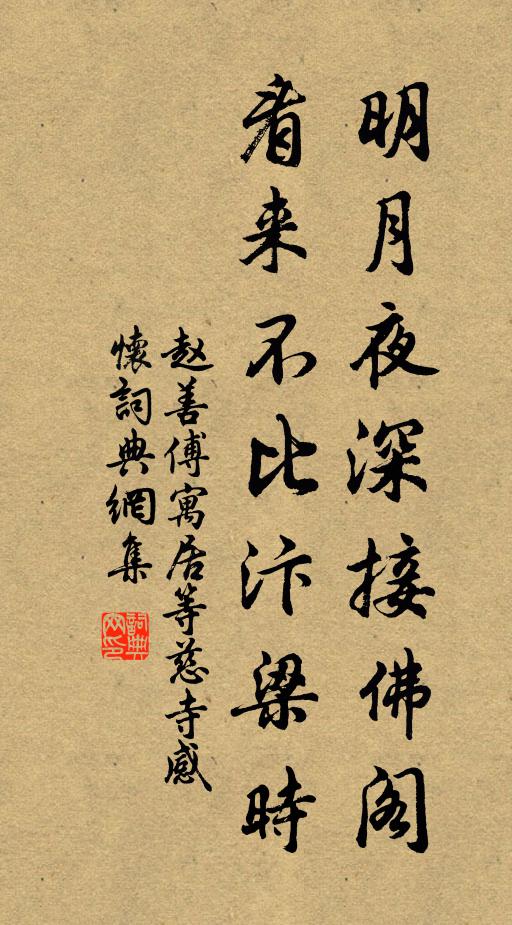 明月夜深接佛阁
看来不比汴梁時
赵善傅寓居等慈寺感
懷詞典網集
詞典網印